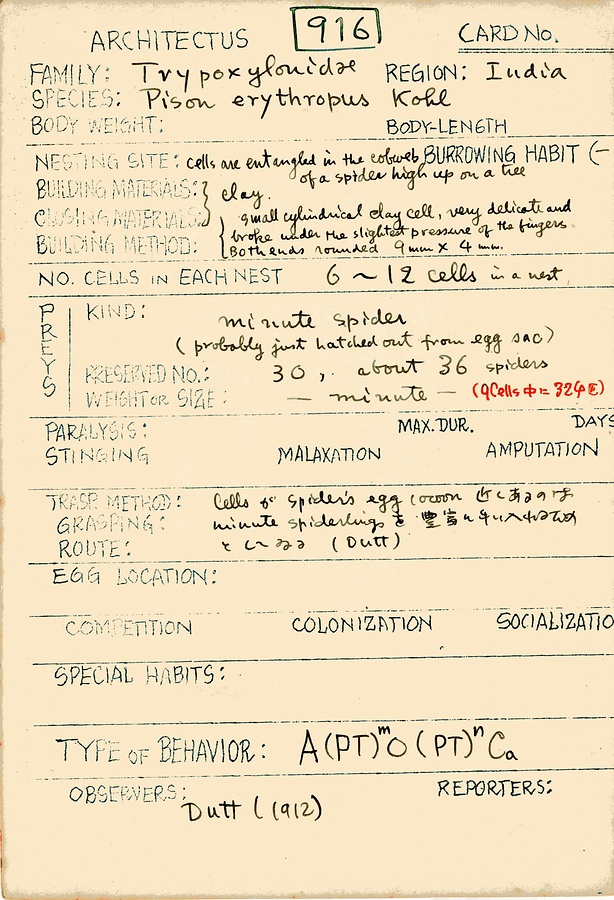 ARCHITECTUS 916 CARD No.
FAMILY: Trypoxylonidae REGION: India
SPECIES: Pison erythropus Kohl
BODY WEIGHT: BODY-LENGTH
NESTING SITE: cells are entangled in the cobweb BURROWING HABIT (-
of a spider high up on a tree
BUILDING MATERIALS: } clay.
CLOSING MATERIALS: small cylindrical clay cell, very delicate and
BUILDING METHOD: broke under the slightest pressure of the fingers.
Both ends rounded 9mm x 4mm.
NO. CELLS IN EACH NEST 6 ~ 12 cells in a nest.
PREYS
KIND: minute spider
(probably just hatched out from egg sac)
PRESERVED NO.: 30, about 36 spiders
WEIGHT OR SIZE: — minute — (9cells中に324匹)
PARALYSIS: MAX.DUR. DAYS
STINGING MALAXATION AMPUTATION
TRASP. METHOD: Cells が spider's egg cocoon 近くあるのは
GRASPING: minute spiderlings を 豊富に手に入れるため
ROUTE: としている (Dutt)
EGG LOCATION:
COMPETITION COLONIZATION SOCIALIZATIO
SPECIAL HABITS:
TYPE OF BEHAVIOR: A(PT)ᵐO(PT)ⁿCa
OBSERVERS: REPORTERS:
Dutt (1912)